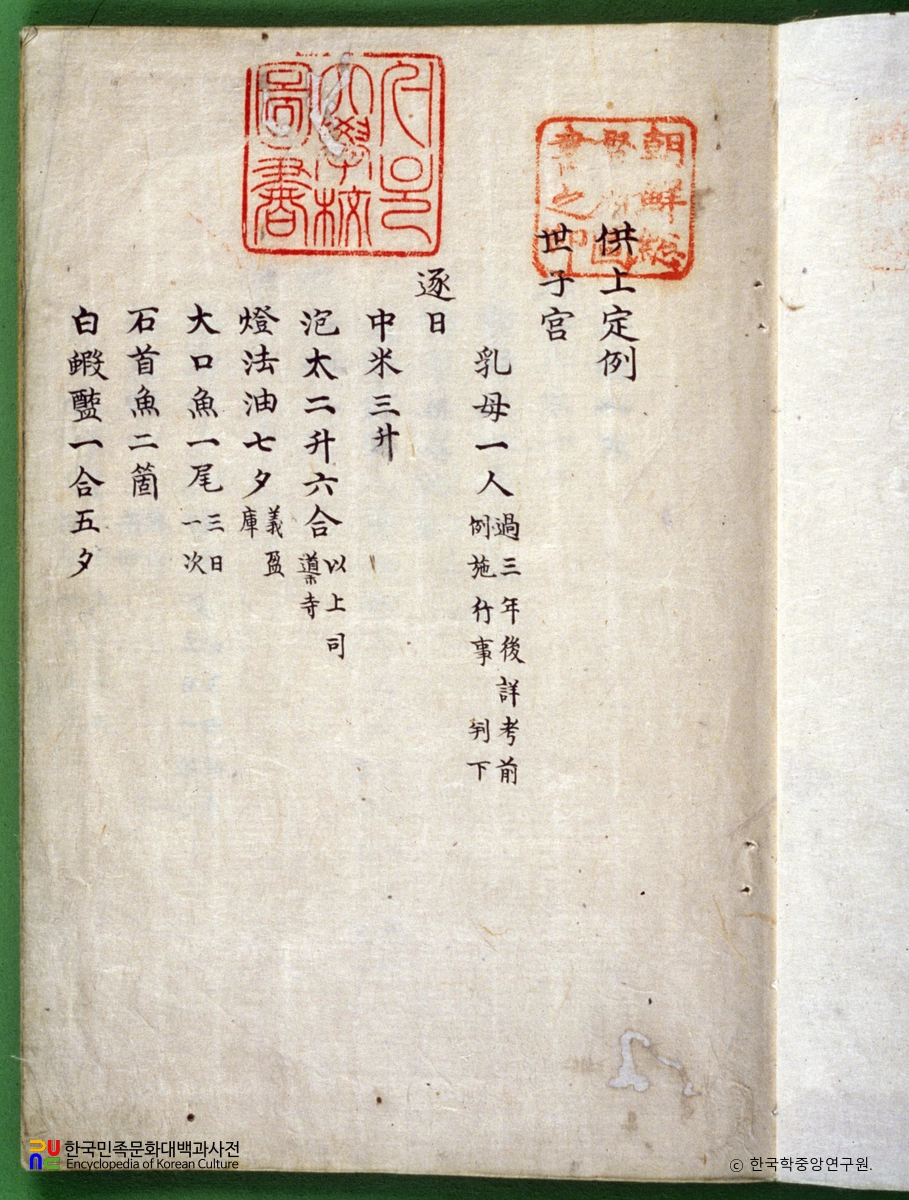 供上定例
世子宮
乳母一人 過三年後詳考前例施行事 判下
逐日
中米三升
泡太二升六合 以上司䆃寺
燈法油七夕 義盈庫
大口魚一尾 三日一次
石首魚二箇
白蝦醢一合五夕
朝鮮總督府圖書之印
大學校
圖書
한국민족문화대백과사전
Encyclopedia of Korean Culture
ⓒ 한국학중앙연구원.